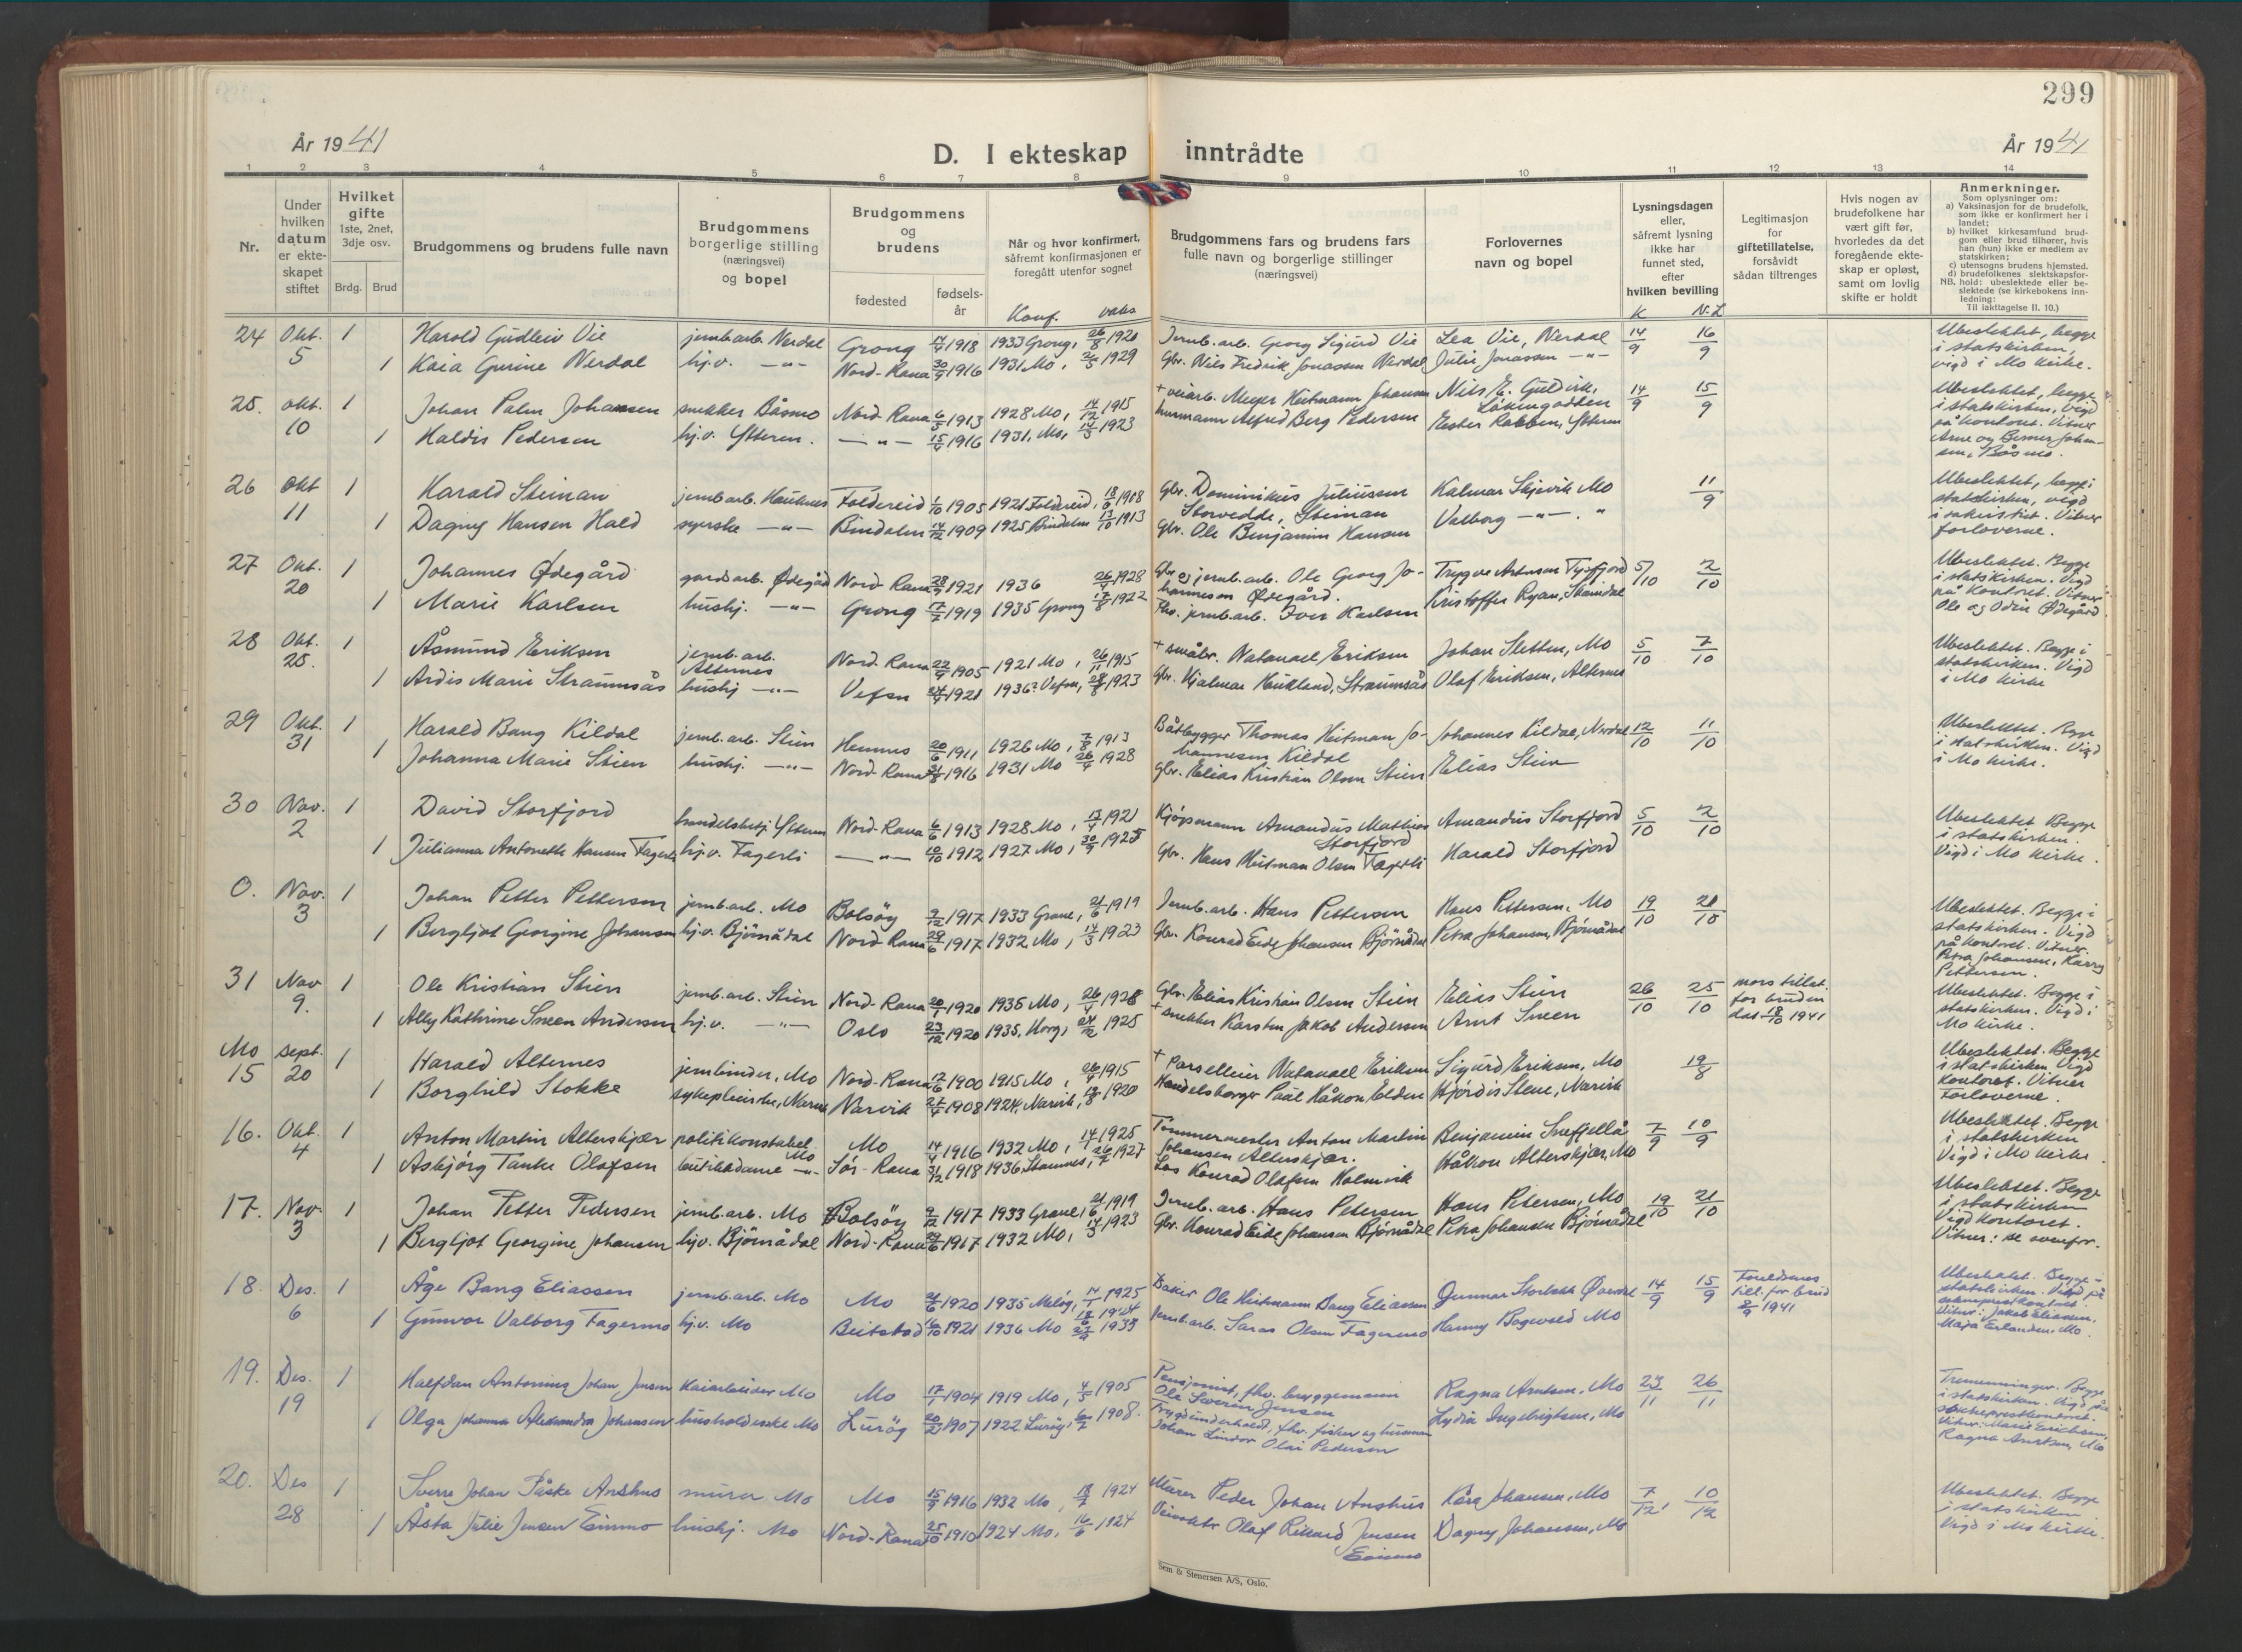 299
År 1941
D. I ekteskap inntrådte
År 1941
1 2 3 4 5 6 7 8 9 10 11 12 13 14
Nr.
Under hvilken datum er ekteskapet stiftet
Hvilket gifte 1ste, 2net, 3dje osv.
Brdg. Brud
Brudgommens og brudens fulle navn
Brudgommens borgerlige stilling (næringsvei) og bopel
Brudgommens og brudens
fødested
fødselsår
Når og hvor konfirmert, såfremt konfirmasjonen er foregått utenfor sognet
Konf. vaks
Brudgommens fars og brudens fars fulle navn og borgerlige stillinger (næringsvei)
Forlovernes navn og bopel
Lysningsdagen eller, såfremt lysning ikke har funnet sted, efter hvilken bevilling
K N.L
Legitimasjon for giftetillatelse, forsåvidt sådan tiltrenges
Hvis nogen av brudefolkene har vært gift før, hvorledes da det foregående ekteskap er opløst, samt om lovlig skifte er holdt
Anmerkninger.
Som oplysninger om:
a) Vaksinasjon for de brudefolk, som ikke er konfirmert her i landet;
b) hvilket kirkesamfund brudgom eller brud tilhører, hvis han (hun) ikke er medlem av statskirken;
c) utensogns brudens hjemsted.
d) brudefolkenes slektskapsforhold: ubeslektede eller beslektede (se kirkebokens innledning:
NB. Til iakttagelse II. 10.)
24 Okt. 5 1 Harald Gudleiv Vie jernb.arb. Nerdal Grong 1918 1933 Grong, 26/8 1920 Jernb.arb. Georg Sigurd Vie Lea Vie, Nerdal 14/9 16/9 Ubeslektet, begge i statskirken, vigd i Mo kirke.
1 Kaia Gurine Nerdal hj.v. —"— Nord-Rana 30/9 1916 1931 Mo, 1929 Gbr. Nils Fredrik Jonassen Nerdal Julie Jonassen —"—
25. okt. 10 1 Johan Palm Johansen snekker Båsmo Nord-Rana 6/5 1913 1928 Mo, 14/12 1915 + veiarb. Meyer Heitmann Johansen Nils E. Guldvik, 14/9 15/9 Ubeslektet, begge i statskirken, Vigd på kontoret. Vitner Arne og Berner Johansen, Båsmo.
1 Haldis Pedersen hj.v. Ytteren. —"— 1916 1931. Mo, 14/3 1923 husmann Alfred Berg Pedersen Ester Rabben, Ytteren
26 okt 11 1 Harald Steinan jernb.arb. Hauknes Foldereid 1/10 1905 1921 Foldereid, 18/6 1908 Gbr. Dominikus Juliussen Storvedde, Steinan Kalmar Skjevik Mo 11/9 Ubeslektet, begge i statskirken, vigd i sakristiet. Vitner forloverne.
1 Dagny Hansen Hald syerske —"— Bindalen 14/12 1909 1925 Bindalen 13/10 1913 Gbr. Ole Benjamin Hansen Valborg —"—. "
27 Okt. 20 1 Johannes Ødegård gardsarb. Ødegård Nord-Rana 1921 1936 26/4 1928 Gbr. og jernb.arb. Ole Georg Johannesen Ødegård. Trygve Arntsen Tysfjord 5/10 2/10 Ubeslektet. Begge i statskirken. Vigd på kontoret. Vitner Ole og Odin Ødegård
1 Marie Karlsen hushj. —"— Grong 17/7 1919 1935 Grong 17/8 1922 Fhv. jernb.arb. Iver Karlsen Kristoffer Ryan,
28 Okt. 25. 1 Åsmund Eriksen jernb.arb. Alternes Nord-Rana 22/9 1905 1921 Mo, 26/11 1915 + småbr. Natanael Eriksen Johan Sletten, Mo 5/10 7/10 Ubeslektet. Begge i statskirken. Vigd i Mo kirke
1 Ardis Marie Straumsås hushj —"— Vefsn 1921 1936 Vefsn, 28/8 1923 Gbr. Hjalmar Haukland, Straumsås Olaf Eriksen, Alternes
29 Okt. 31 1 Harald Bang Kildal jernb.arb. Stien Hemnes 20/6 1911 1926 Mo, 7/8 1913 Båtbygger Thomas Heitman Johannesen Kildal Johannes Kildal, Nerdal 12/10 11/10 Ubeslektet. Begge i statskirken. Vigd i Mo kirke.
1 Johanna Marie Stien hushj. —"— Nord-Rana 1916 1931 Mo 26/4 1928 Gbr. Elias Kristian Olsen Stien Elias Stien
30 Nov. 2 1 David Storfjord handelsbetj. Ytteren Nord-Rana 6/6 1913 1928 Mo, 17/4 1921 Kjøpmann Amandus Mathias Storfjord Amandus Storfjord 5/10 2/10 Ubeslektet Begge i statskirken. Vigd i Mo kirke.
1 Julianna Antonette Hansen Fagerli hj.v. Fagerli —"— 1912 1927 Mo, 30/9 1925 Gbr. Hans Heitman Olsen Fagerli Harald Storfjord
0. Nov. 3 1 Johan Petter Pettersen jernb.arb. Mo Bolsøy 9/12 1917 1933 Grane, 21/6 1919 Jernb.arb. Hans Pettersen Hans Pettersen. Mo 19/10 21/10 Ubeslektet. Begge i statskirken. Vigd på kontoret. Vitner Petra Johansen, Karry Pettersen.
1 Bergljot Georgine Johansen hj.v. Bjørnådal Nord-Rana 29/6 1917 1932 Mo, 14/3 1923 Gbr. Konrad Eide Johansen Bjørnådal Petra Johansen, Bjørnådal
31 Nov 9. 1 Ole Kristian Stien jernb.arb. Stien Nord-Rana 1920 1935 Mo, 26/4 1928 Gbr. Elias Kristian Olsen Stien Elias Stien 26/10 25/10 mors tillat. for bruden dat. 18/10 1941 Ubeslektet. Begge i statskirken. Vigd i Mo kirke.
1 Ally Kathrine Sneen Andersen hj.v. —"— Oslo 23/12 1920 1935. 1925 + snekker Karsten Jakob Andersen Arnt Sneen
Mo 15 sept. 20 1 Harald Alternes jernbinder, Mo Nord-Rana 1900 1915 Mo, 1915 + Parselleier Natanael Eriksen Sigurd Eriksen, Mo 19/8 Ubeslektet. Begge i statskirken Vigd kontoret. Vitner Forloverne.
1 Borghild Stokke Narvik 1908 1924, Narvik, 1920 Handelsborger Paål Håkon Elden Hjørdis Stene, Narvik
16. Okt. 4 1 Anton Martin Alterskjær politikonstabel Mo Mo 14/4 1916 1932 Mo, 1925 Tømmermester Anton Martin Johansen Alterskjær. Benjamin Snefjellå 7/9 10/9 Ubeslektet. Begge i statskirken Vigd i Mo kirke.
1 Asbjørg Tanke Olafsen butikkdame —"— Sør-Rana 31/12 1918 1936 Stamnes, 1927 Los Konrad Olafsen Holmvik Håkon Alterskjær, Mo
17. Nov. 3 1 Johan Petter Pedersen jernb.arb. Mo Bolsøy 9/12 1917 1933 Grane, 21/6 1919 Jernb.arb. Hans Petersen Hans Petersen, Mo 19/10 21/10 Ubeslektet. Begge i statskirken Vigd kontoret. Vitner: se ovenfor.
1 Bergljot Georgine Johansen hj.v. Bjørnådal Nord-Rana 29/6 1917 1932 Mo, 14/3 1923 Gbr. Konrad Eide Johansen Bjørnådal Petra Johansen Bjørnådal
18. Des. 6 1 Åge Bang Eliassen jernb.arb. Mo Mo 1920 1935 Meløy, 1925 Baker Ole Heitmann Bang Eliassen Gunnar 14/9 15/9 Foreldrenes till. for brud 1941 Ubeslektet. Begge i statskirken. Vigd på sokneprestkontoret. Vitner: Jakob Eliassen, Maja Erlandsen, Mo.
1 Gunvor Valborg Fagermo hj.v. Mo Beitstad 1921 1936 Mo 1935 Jernb.arb. Saras Olsen Fagermo Hanny Bogevold Mo
19. Des. 19 1 Halfdan Antonius Johan Jensen Kaiarbeider Mo Mo 17/1 1904 1919 Mo, 4/5 1905 Pensjonist, fhv. bryggemann Ole Severin Jensen Ragna Arntsen, Mo 23/11 26/11 Tremenninger. Begge i statskirken. Vigd på sokneprestkontoret. Vitner: Marie Erichsen, Ragna Arntsen, Mo
1 Olga Johanna Alexandra Johansen Mo Lurøy 1907 1922 Lurøy, 1908. Trygdunderholdt, fhv. fisker og husmann Johan Lindor Olai Pedersen Lydia Ingebrigtsen, Mo
20. Des 28 1 Sverre Johan Påske Anshus murer Mo Mo 15/9 1916 1932 Mo, 18/7 1924 Murer Peder Johan Anshus Kåre Johansen, Mo 7/12 10/12 Ubeslektet. Begge i statskirken Vigd i Mo kirke.
1 Åsta Julie Jensen Einmo hushj. Mo Nord-Rana 25/10 1910 1924 Mo, 16/6 1924 Olaf Rikard Jensen Einmo Dagny Johansen, Mo
Sem & Stenersen A/S, Oslo.